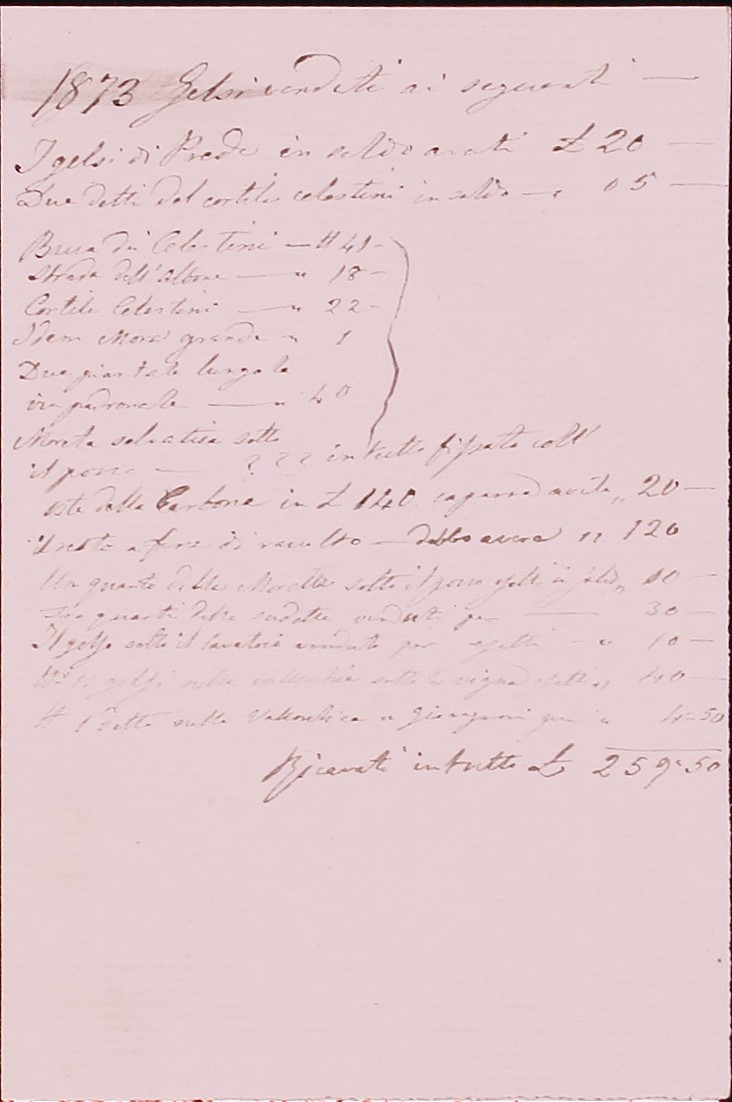 1873 Gelsi venduti ai seguenti —
I gelsi di Prede in saldo avuti £ 20 —
Due detti del cortile celestini in saldo — " 0 5 —
Buca dei Celestini — # 41 -
Strada dell'Albone — " 18 -
Cortile Celestini — " 22 -
Idem Mora grande " 1
Due piantate lungo le
vie padronale — " 40
Moreta salvatica sotto
il pozzo — ? ? ? in tutto fissato coll'
oste della Carbona in £ 140 caparra avuta " 20 —
Il resto a fine di raccolto — debbo avere " 120
Un quarto delle Morette sotto il pozzo in saldo " 10 —
Tre quarti delle sudette venduti per — 30 —
Il gelso sotto il lavatoio venduto per — " 10 —
gelsi nella vallecchia sotto la vigna " 40 —
# 1 detto nella a per " 4=50
Ricavati in tutto £ 259=50